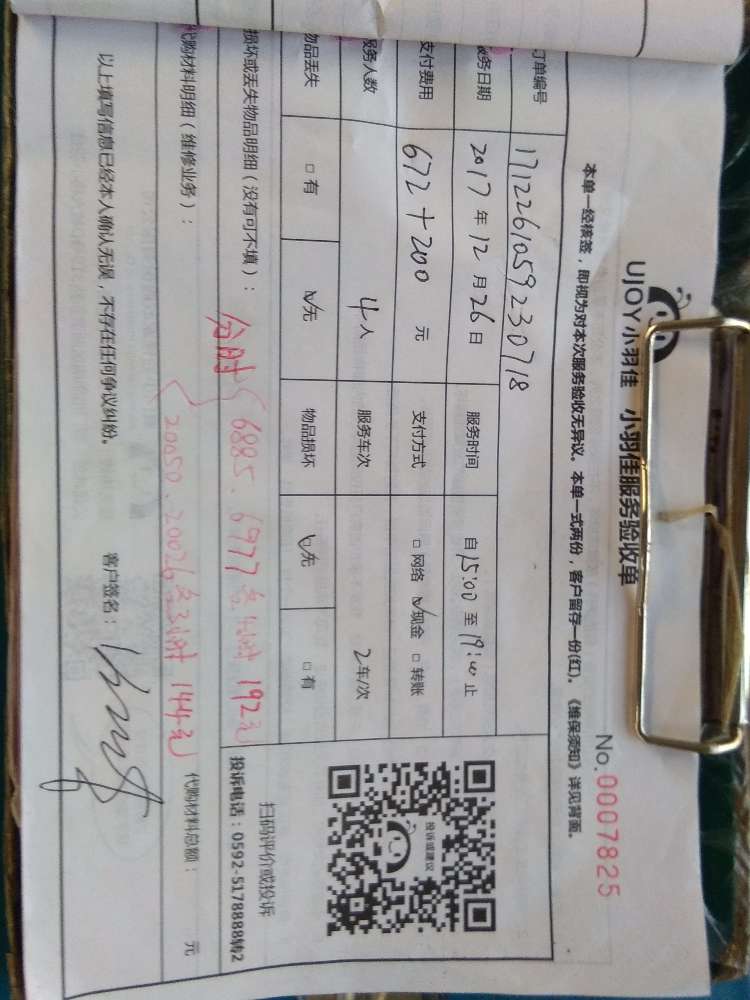 UJOY小羽佳 小羽佳服务验收单
No.0007825
本单一经核签，即视为对本次服务验收无异议。本单一式两份，客户留存一份(红)。《维保须知》详见背面。
订单编号 1712261059230718
服务日期 2017年12月26日 服务时间 自15:00至19:00止
支付费用 672+200 元 支付方式 □网络 ☑现金 □转账
服务人数 4人 服务车次 2车/次
物品丢失 □有 ☑无 物品损坏 ☑无 □有
损坏或丢失物品明细（没有可不填）：
分时 6885、6977各4小时 192元
20050、20026各3小时 144元
代购材料明细（维修业务）：
代购材料总额： 元
以上填写信息已经本人确认无误，不存在任何争议纠纷。
客户签名：
投诉或建议
扫码评价或投诉
投诉电话：0592-5178888转2